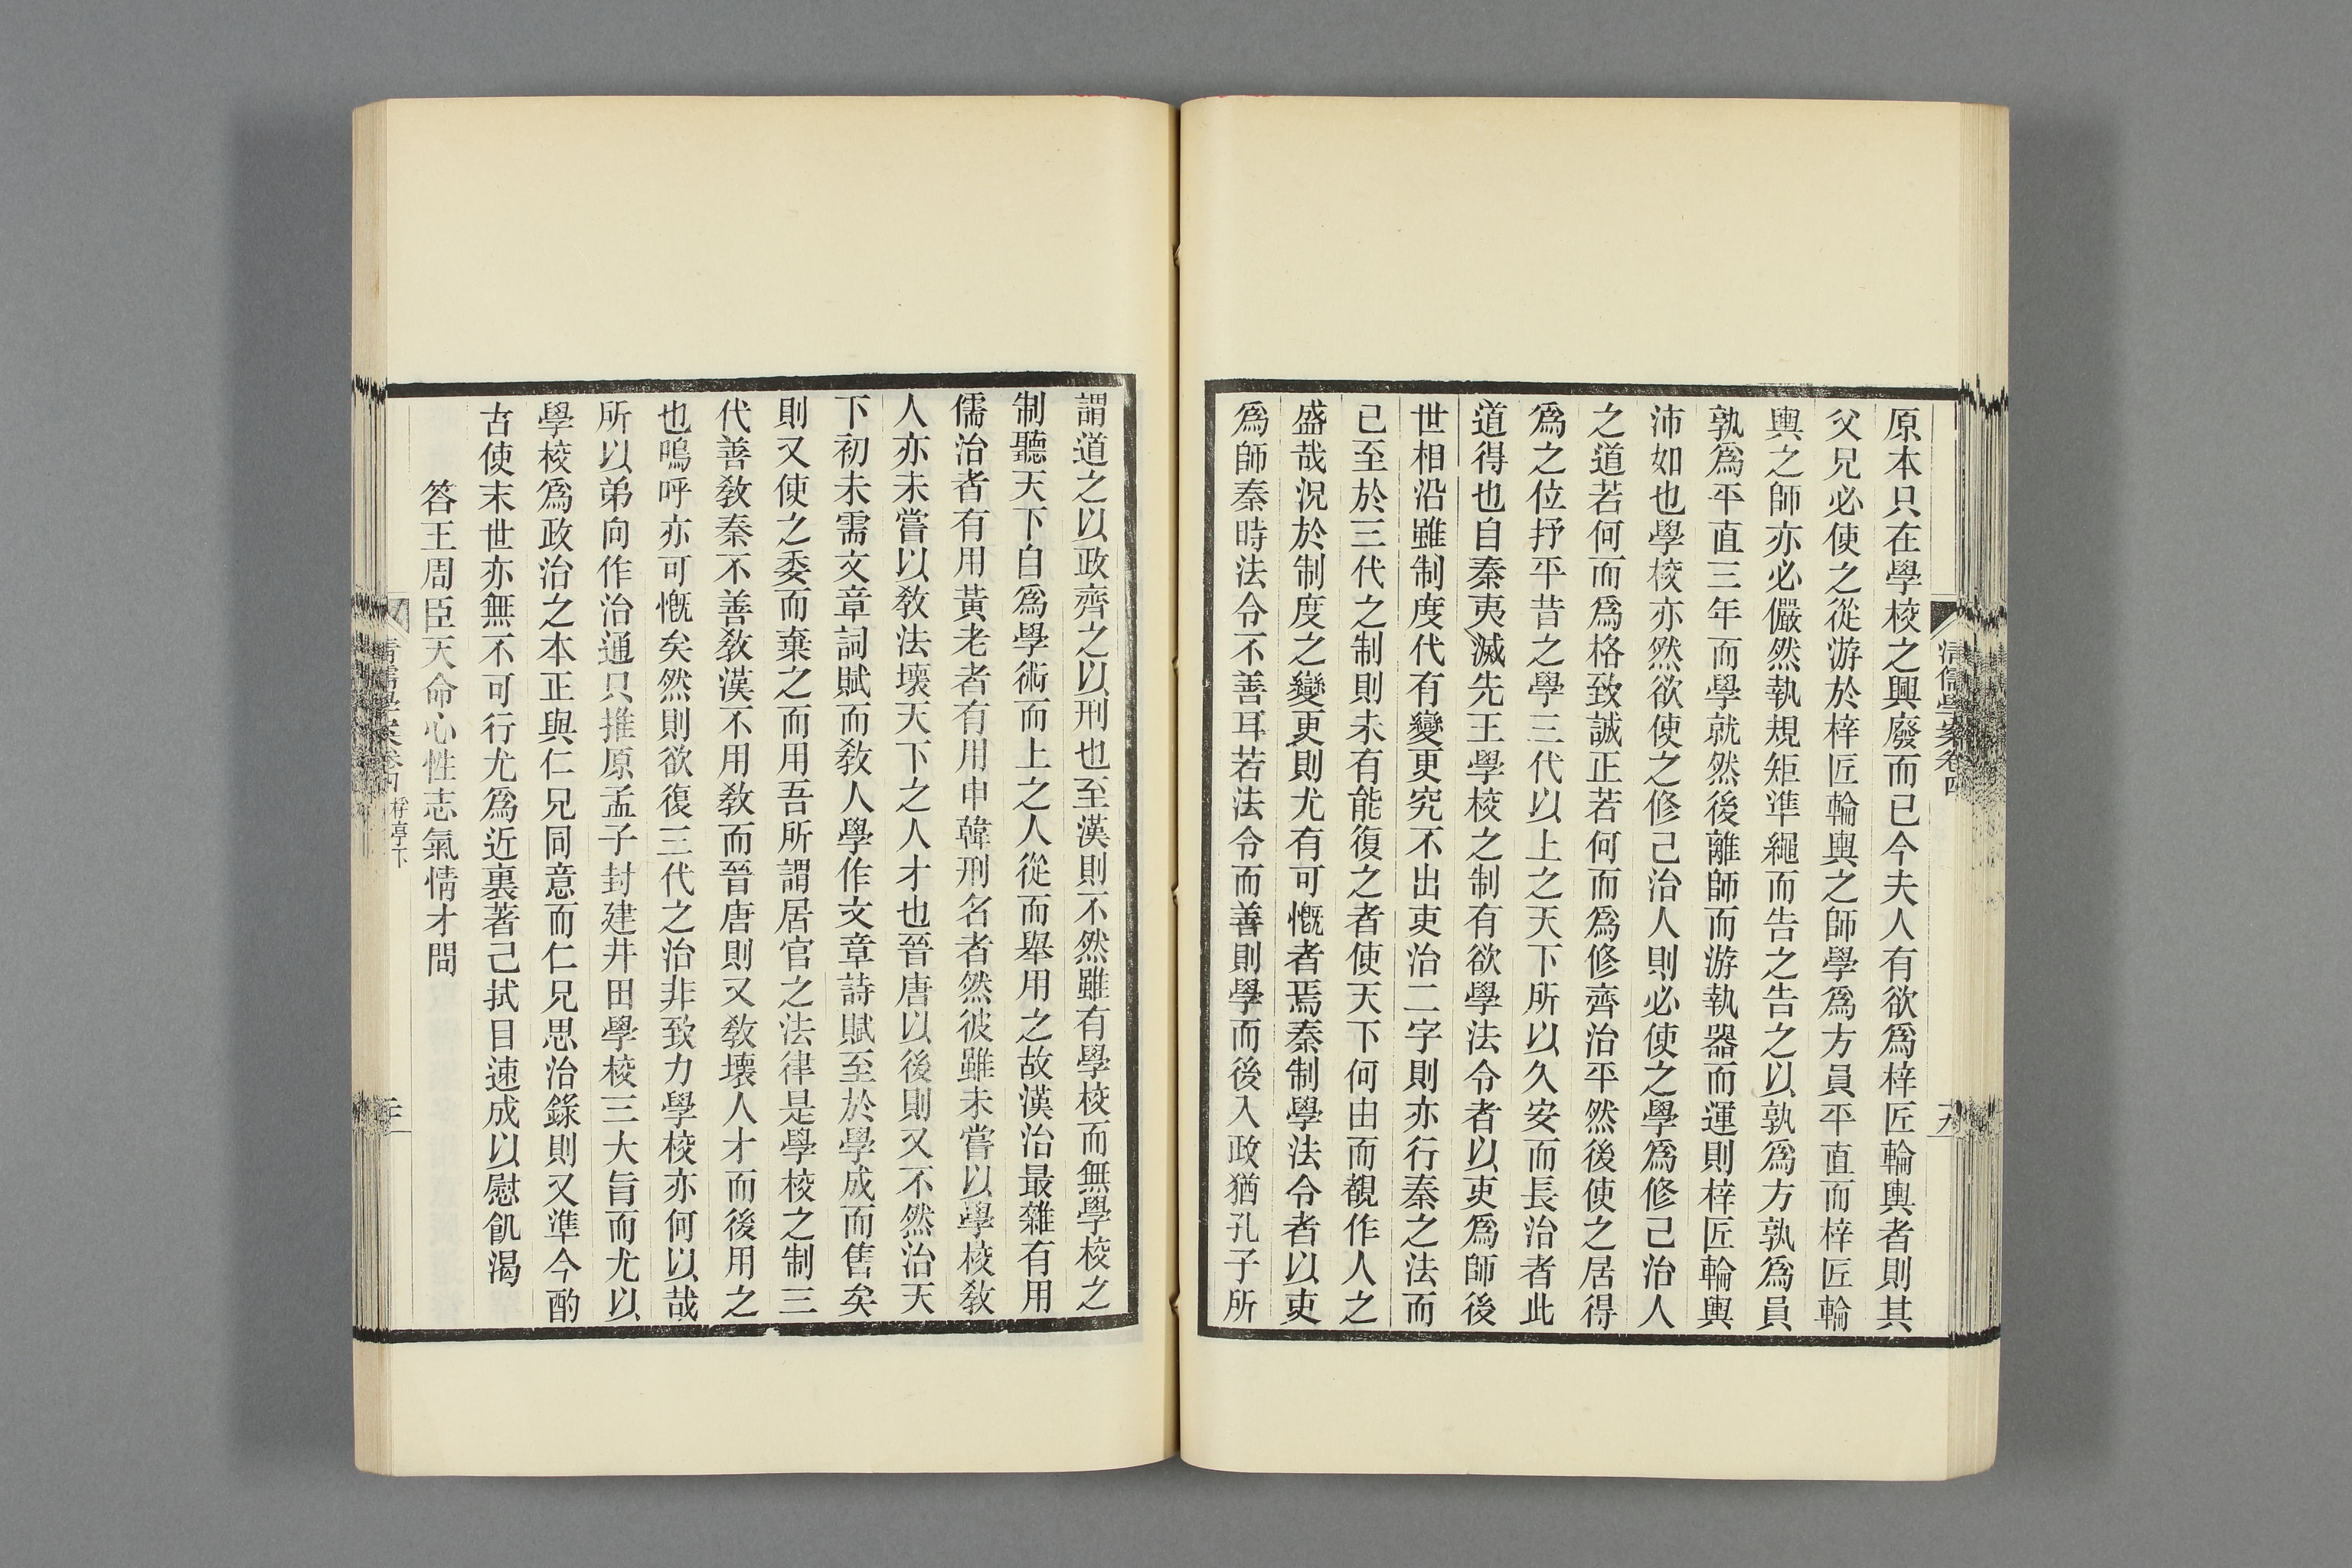 清儒學案卷四
十九
原本只在學校之興廢而已今夫人有欲爲梓匠輪輿者則其
父兄必使之從游於梓匠輪輿之師學爲方員平直而梓匠輪
輿之師亦必儼然執規矩準繩而告之告之以孰爲方孰爲員
孰爲平直三年而學就然後離師而游執器而運則梓匠輪輿
沛如也學校亦然欲使之修己治人則必使之學爲修己治人
之道若何而爲格致誠正若何而爲修齊治平然後使之居得
爲之位抒平昔之學三代以上之天下所以久安而長治者此
道得也自秦夷滅先王學校之制有欲學法令者以吏爲師後
世相沿雖制度代有變更究不出吏治二字則亦行秦之法而
已至於三代之制則未有能復之者使天下何由而覩作人之
盛哉況於制度之變更則尤有可慨者焉秦制學法令者以吏
爲師秦時法令不善耳若法令而善則學而後入政猶孔子所
謂道之以政齊之以刑也至漢則不然雖有學校而無學校之
制聽天下自爲學術而上之人從而舉用之故漢治最雜有用
儒治者有用黃老者有用申韓刑名者然彼雖未嘗以學校敎
人亦未嘗以敎法壞天下之人才也晉唐以後則又不然治天
下初未需文章詞賦而敎人學作文章詩賦至於學成而售矣
則又使之委而棄之而用吾所謂居官之法律是學校之制三
代善敎秦不善敎漢不用敎而晉唐則又敎壞人才而後用之
也嗚呼亦可慨矣然則欲復三代之治非致力學校亦何以哉
所以弟向作治通只推原孟子封建井田學校三大旨而尤以
學校爲政治之本正與仁兄同意而仁兄思治錄則又準今酌
古使末世亦無不可行尤爲近裏著己拭目速成以慰飢渴
答王周臣天命心性志氣情才問
清儒學案卷四
桴亭下
二十